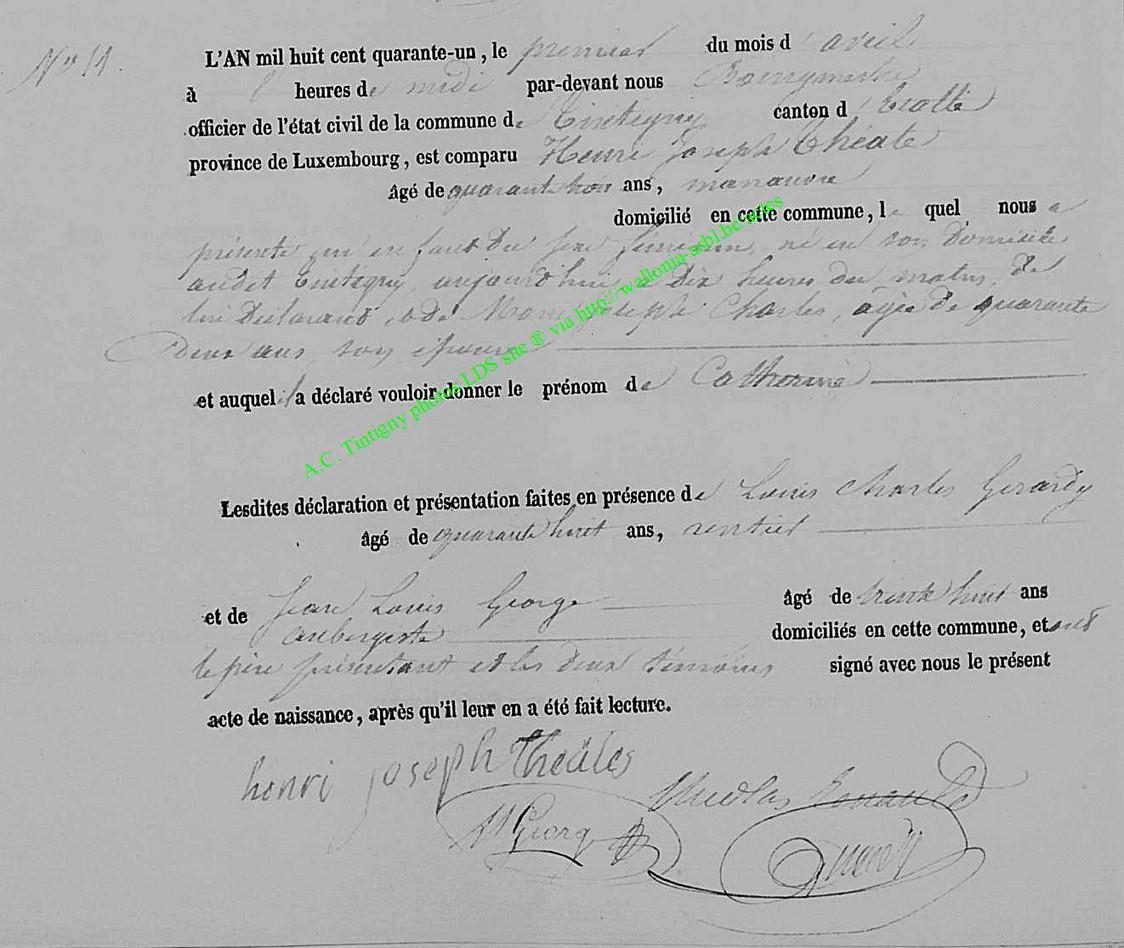 N° 11.
L'AN mil huit cent quarante-un, le premier du mois d'avril
à heures de midi par-devant nous Bourgmestre
officier de l'état civil de la commune de Tintigny canton d'Etalle
province de Luxembourg, est comparu Henri Joseph Théate
âgé de quarante trois ans, manœuvre
domicilié en cette commune, lequel nous a
présenté un enfant du sexe féminin, né en son domicile
audit Tintigny aujourd'hui à dix heures du matin, de
lui déclarant et de Marie Joseph Charles agée de quarante
deux ans son épouse
et auquel il a déclaré vouloir donner le prénom de Catherine
Lesdites déclaration et présentation faites en présence de Louis Charles Gerardy
âgé de quarante huit ans, rentier
et de Jean Louis George âgé de trente huit ans
aubergiste domiciliés en cette commune, et ont
le père présentant et les deux témoins signé avec nous le présent
acte de naissance, après qu'il leur en a été fait lecture.
henri joseph Theâtes
Nicolas
Georg
A.C. Tintigny photos LDS sne ® via http://wallonia-asbl.be/actes